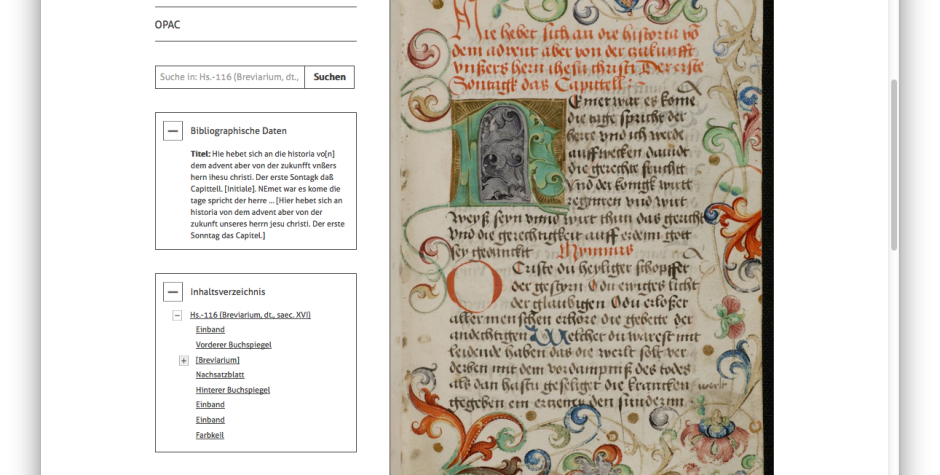 OPAC
Suche in: Hs.-116 (Breviarium, dt.,
Suchen
Bibliographische Daten
Titel: Hie hebet sich an die historia vo[n]
dem advent aber von der zukunfft vnßers
hern ihesu christi. Der erste Sontagk daß
Capittell. [Initiale]. NEmet war es kome die
tage spricht der herre ... [Hier hebet sich an
historia von dem advent aber von der
zukunft unseres herrn jesu christi. Der erste
Sonntag das Capitel.]
Inhaltsverzeichnis
Hs.-116 (Breviarium, dt., saec. XVI)
Einband
Vorderer Buchspiegel
[Breviarium]
Nachsatzblatt
Hinterer Buchspiegel
Einband
Einband
Farbkeil
Hie hebet sich an die historia vō
dem advent aber von der zukunfft
vnßers hern ihesu christi Der erste
Sontagk das Capittell
NEmet war es kome
die tage spricht der
herre vnd ich werde
auffwecken dauidt
die gerechte frucht
Vnd der konigk wirt
regniren vnd wirt
weyß seyn vnnd wirt thun das gericht
Vnd die gerechtigkeit auff erden gott
sey gedanckt Hymnus
O Criste du heyliger schopffer
der gestyrn Du ewiges licht
der glaubigen Du erloßer
aller menschen erhore die gebette der
andechtigen Welcher du warest mit
leidende haben das die werlt solt ver
derben mit dem vordampniß des todes
als dan hastu geseliget die krancken werlt
gegeben ein den sundernn